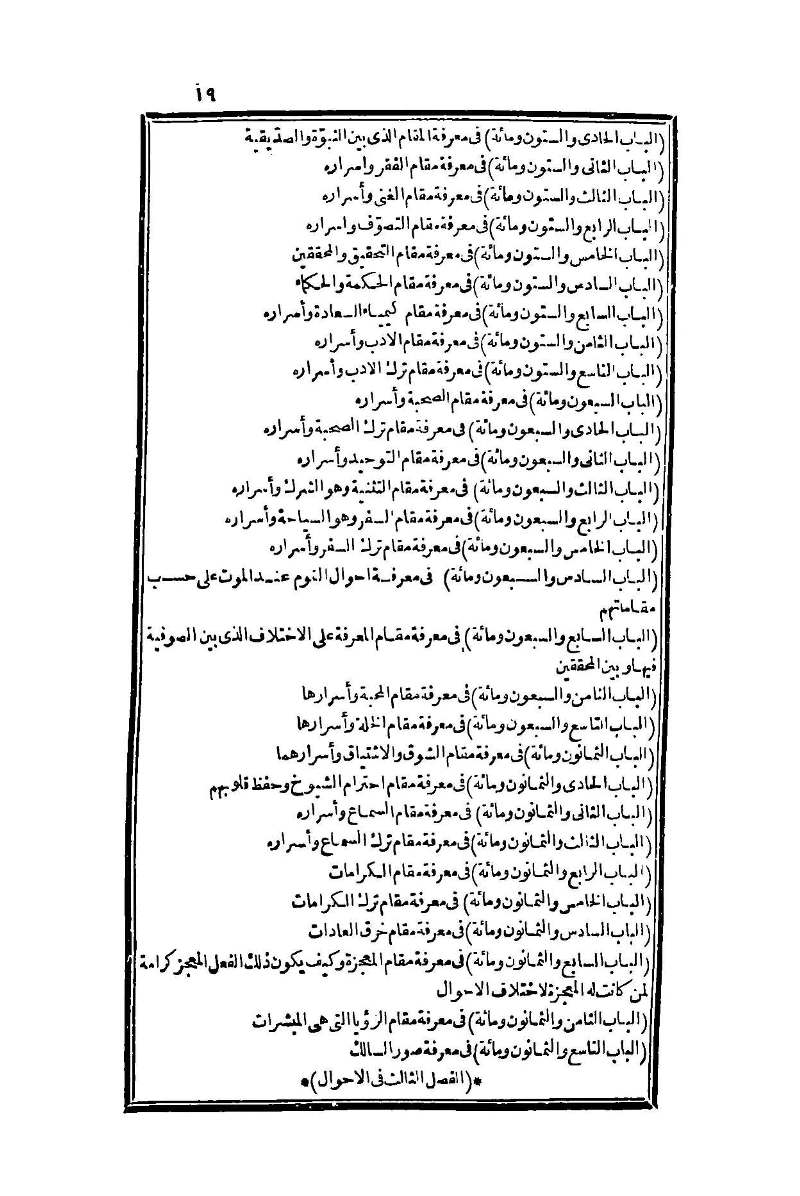 ١٩
(الباب الحادى والستون ومائة) فى معرفة المقام الذى بين النبوّة والصدّيقية
(الباب الثانى والستون ومائة) فى معرفة مقام الفقر واسراره
(الباب الثالث والستون ومائة) فى معرفة مقام الغنى وأسراره
(الباب الرابع والستون ومائة) فى معرفة مقام التصوّف واسراره
(الباب الخامس والستون ومائة) فى معرفة مقام التحقيق والمحققين
(الباب السادس والستون ومائة) فى معرفة مقام الحكمة والحكماء
(الباب السابع والستون ومائة) فى معرفة مقام كيمياء السعادة وأسراره
(الباب الثامن والستون ومائة) فى معرفة مقام الادب وأسراره
(الباب التاسع والستون ومائة) فى معرفة مقام ترك الادب وأسراره
(الباب السبعون ومائة) فى معرفة مقام الصحبة وأسراره
(الباب الحادى والسبعون ومائة) فى معرفة مقام ترك الصحبة وأسراره
(الباب الثانى والسبعون ومائة) فى معرفة مقام التوحيد وأسراره
(الباب الثالث والسبعون ومائة) فى معرفة مقام التثنية وهو الشرك وأسراره
(الباب الرابع والسبعون ومائة) فى معرفة مقام السفر وهو السياحة وأسراره
(الباب الخامس والسبعون ومائة) فى معرفة مقام ترك السفر وأسراره
(الباب السادس والسبعون ومائة) فى معرفة احوال القوم عند الموت على حسب
مقاماتهم
(الباب السابع والسبعون ومائة) فى معرفة مقام المعرفة على الاختلاف الذى بين الصوفية
فيها وبين المحققين
(الباب الثامن والسبعون ومائة) فى معرفة مقام المحبة وأسرارها
(الباب التاسع والسبعون ومائة) فى معرفة مقام الخلة وأسرارها
(الباب الثمانون ومائة) فى معرفة مقام الشوق والاشتياق وأسرارهما
(الباب الحادى والثمانون ومائة) فى معرفة مقام احترام الشيوخ وحفظ قلوبهم
(الباب الثانى والثمانون ومائة) فى معرفة مقام السماع وأسراره
(الباب الثالث والثمانون ومائة) فى معرفة مقام ترك السماع وأسراره
(الباب الرابع والثمانون ومائة) فى معرفة مقام الكرامات
(الباب الخامس والثمانون ومائة) فى معرفة مقام ترك الكرامات
(الباب السادس والثمانون ومائة) فى معرفة مقام خرق العادات
(الباب السابع والثمانون ومائة) فى معرفة مقام المعجزة وكيف يكون ذلك الفعل المعجز كرامة
لمن كانت له المعجزة لاختلاف الاحوال
(الباب الثامن والثمانون ومائة) فى معرفة مقام الرؤيا التى هى المبشرات
(الباب التاسع والثمانون ومائة) فى معرفة صور السالك
*(الفصل الثالث فى الاحوال)*